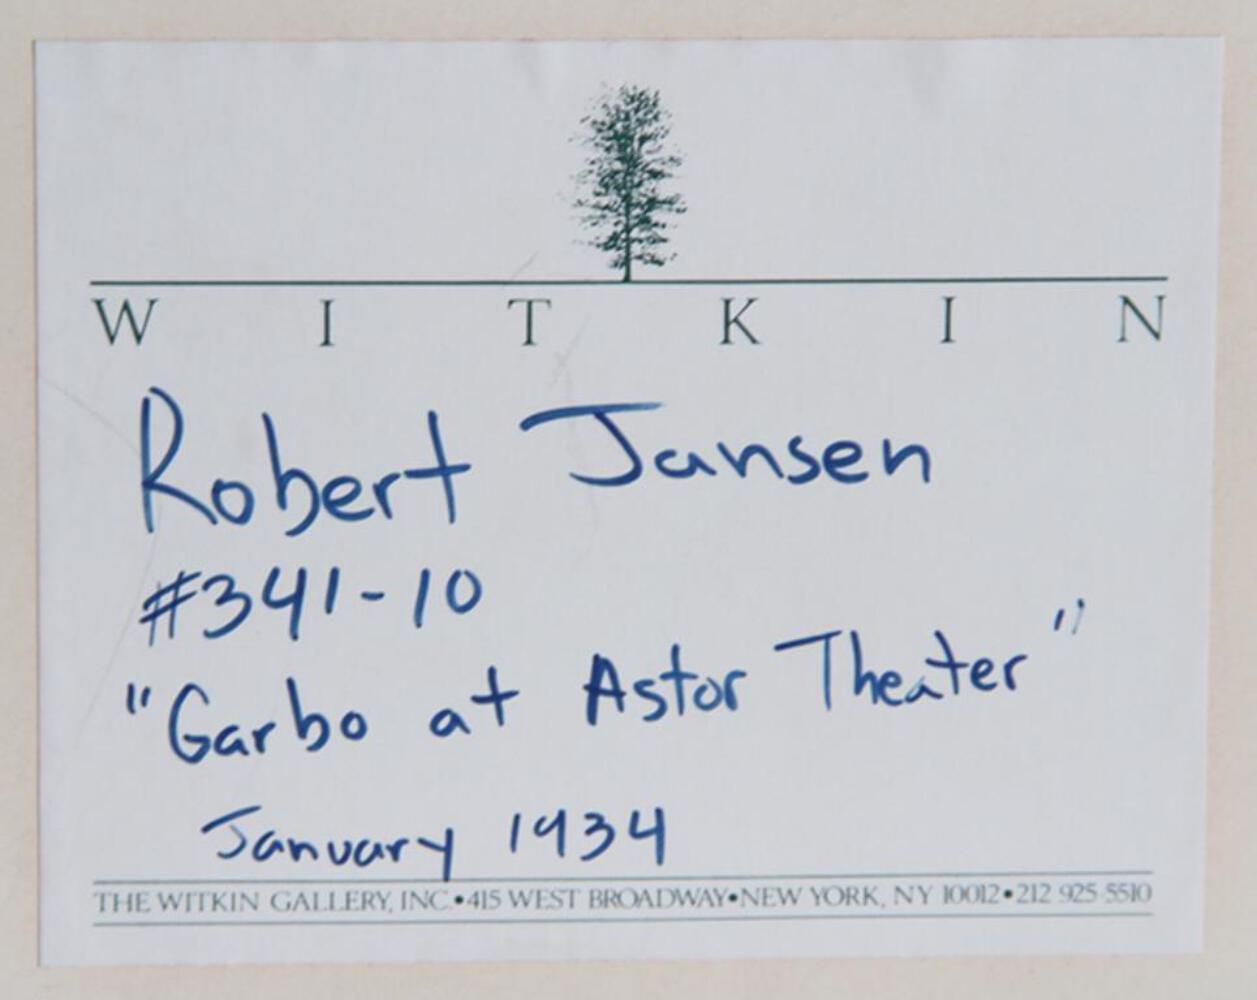 W I T K I N
Robert Jansen
#341-10
"Garbo at Astor Theater"
January 1934
THE WITKIN GALLERY, INC.•415 WEST BROADWAY•NEW YORK, NY 10012•212 925-5510